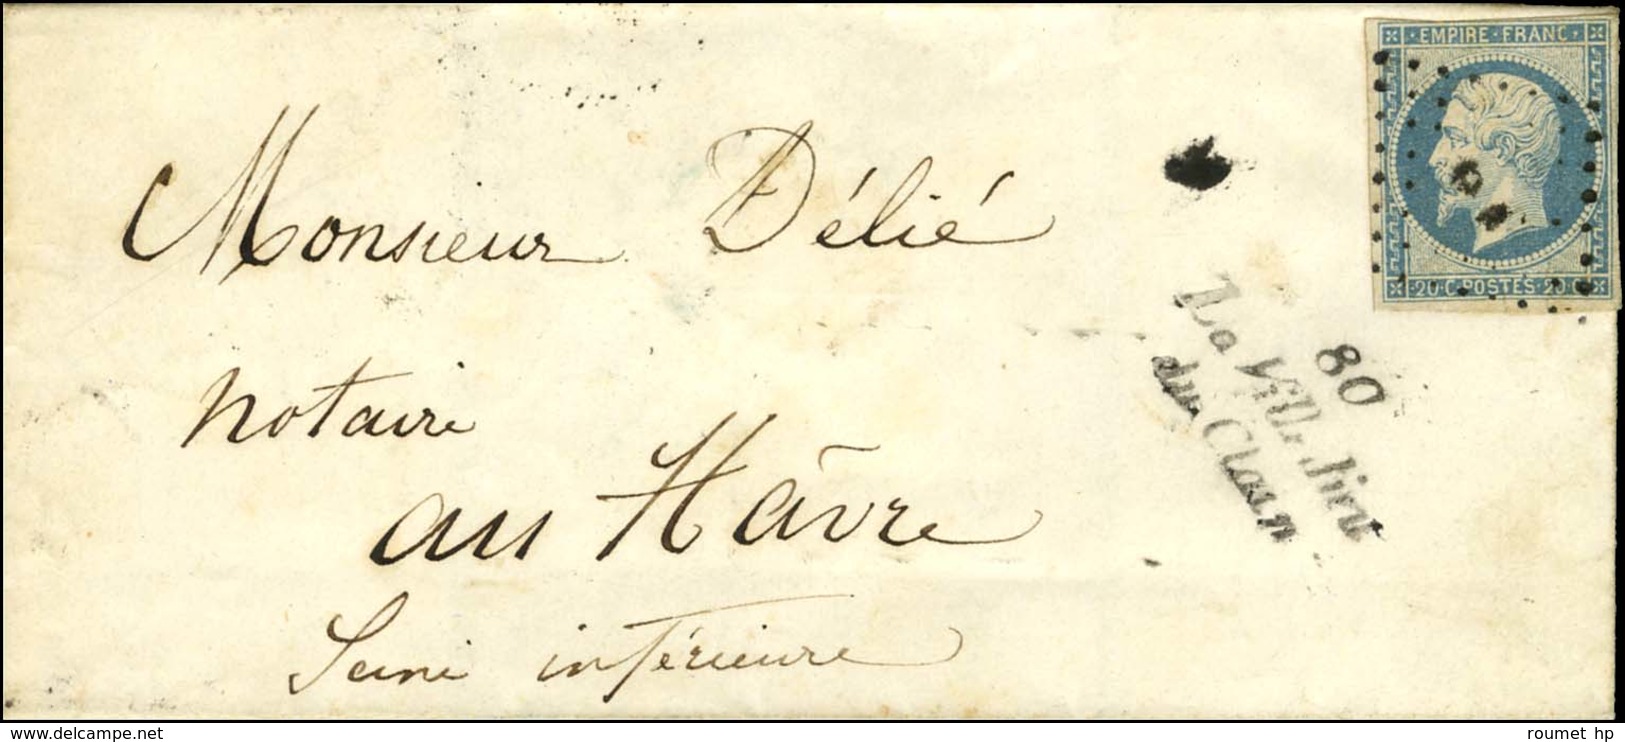 EMPIRE · FRANC
Monsieur Délié
20 · C · POSTES · 20 · C
80
La Ville Dieu
du Clain
notaire
au Hâvre
Seine inférieure
www.delcampe.net
roumet hp